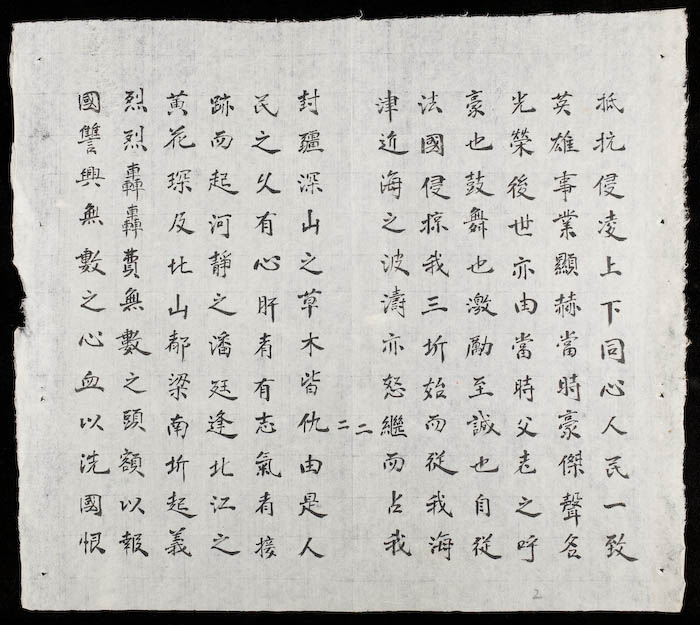 抵抗侵凌上下同心人民一致
英雄事業顯赫當時豪傑聲名
光榮後世亦由當時父老之呼
豪也鼓舞也激勵至誠也自從
法國侵掠我三圻始而從我海
津近海之波濤亦怒繼而占我
二二
封疆深山之草木皆仇由是人
民之久有心肝者有志氣者接
跡而起河靜之潘廷逢北江之
黃花琛及北山都梁南圻起義
烈烈轟轟費無數之頭額以報
國讐興無數之心血以洗國恨
2